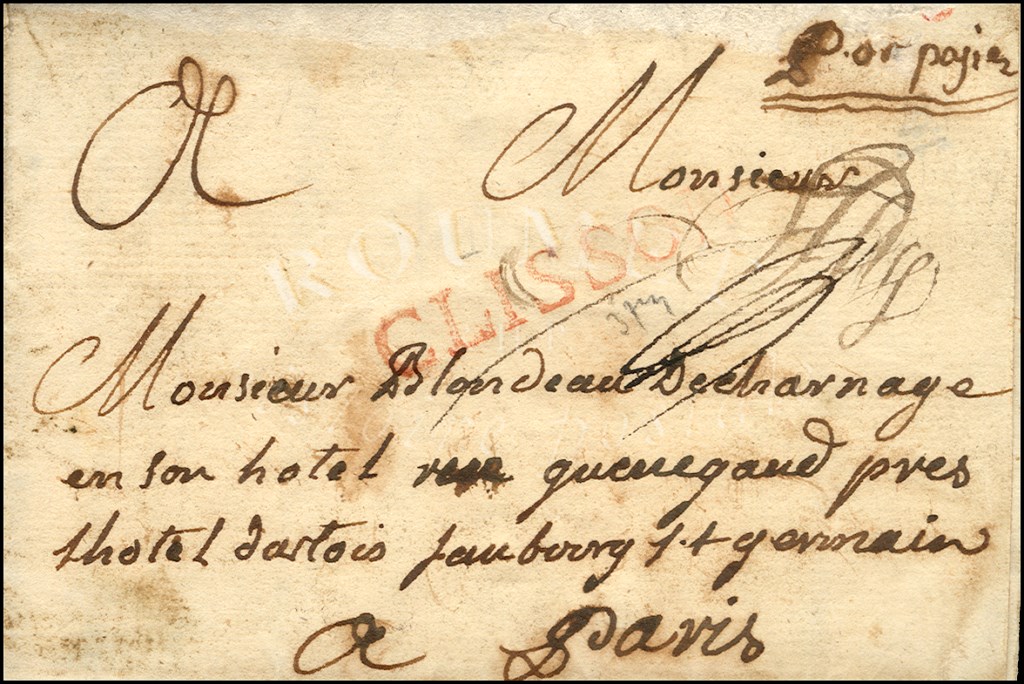 P. or payiez
A Monsieur
CLISSON
Monsieur Blondeau Decharnage
en son hotel rue quenegaud pres
lhotel dartois faubourg st germain
a Paris